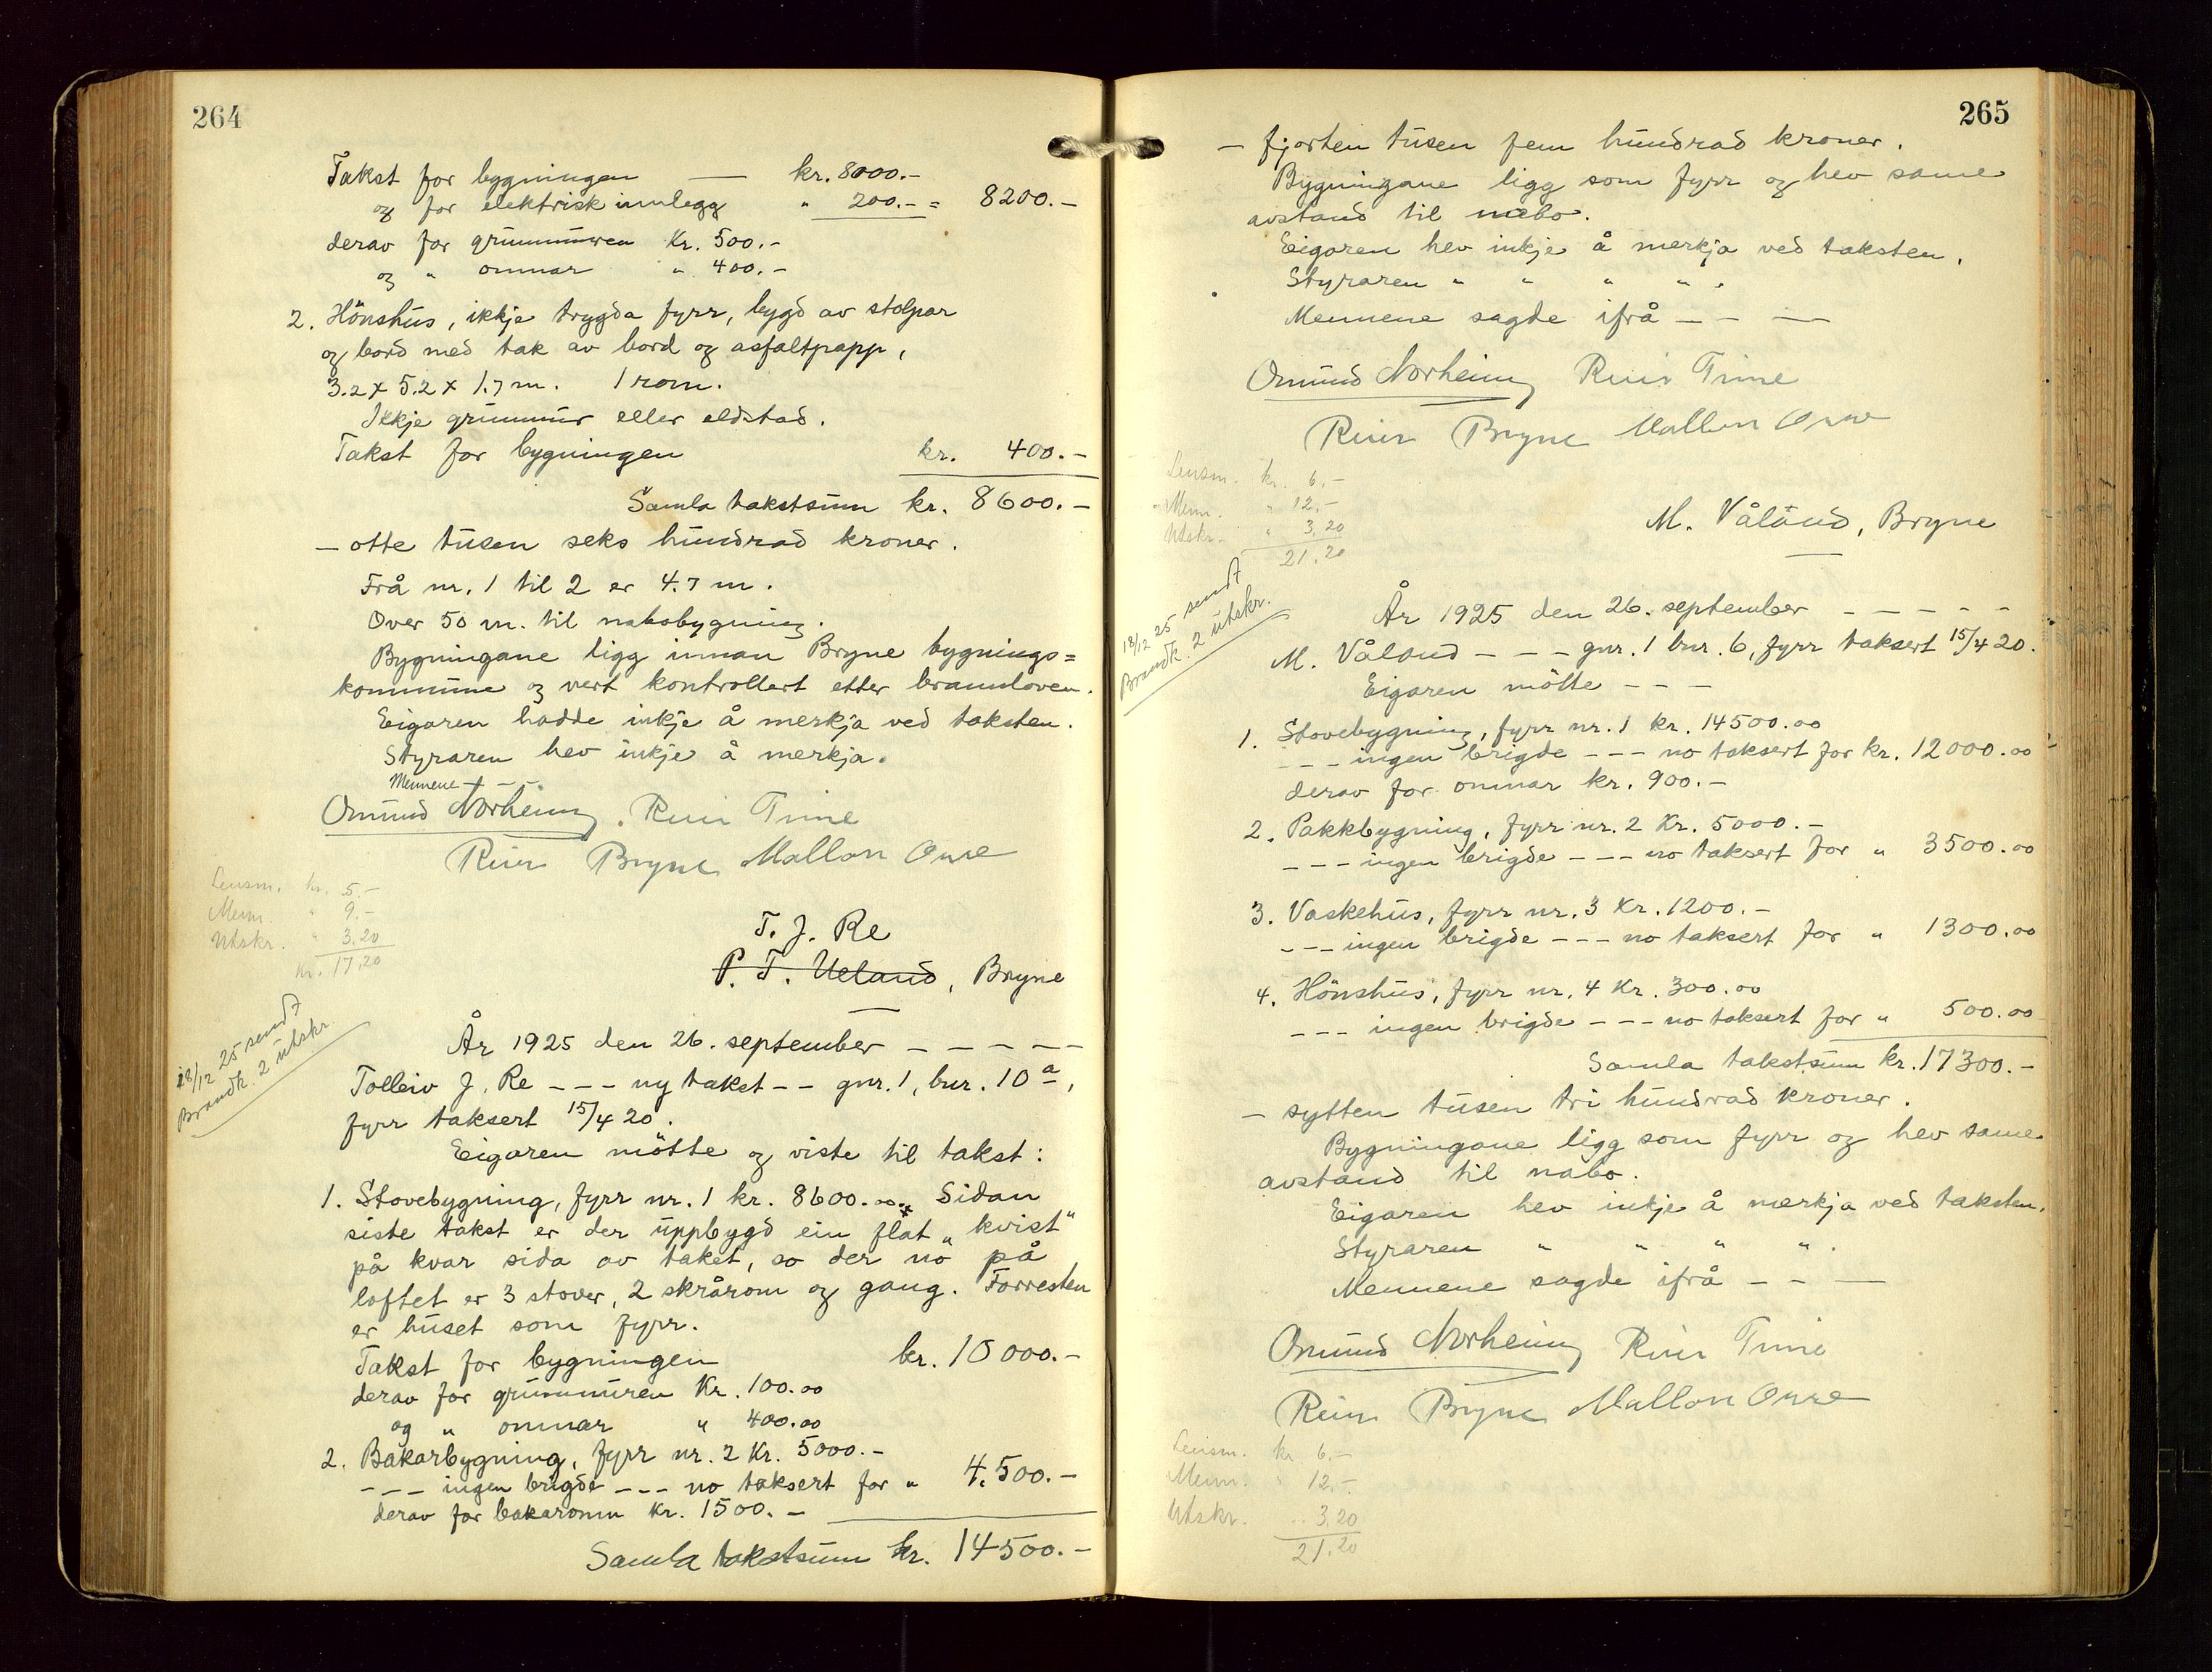 264
Takst for bygningen — kr. 8000.-
og for elektrisk innlegg " 200.- = 8200.-
derav for grunnmuren Kr. 500.-
og " omnar " 400.-
2. Hönshus, ikkje trygda fyrr, bygd av stolpar
og bord med tak av bord og asfaltpapp,
3.2 x 5.2 x 1.7 m. 1 rom.
Ikkje grunnmur eller eldstad.
Takst for bygningen kr. 400.-
Samla takstsum kr. 8600.-
— otte tusen seks hundrad kroner.
Frå nr. 1 til 2 er 4.7 m.
Over 50 m. til nabobygning.
Bygningane ligg innan Bryne bygnings=
kommune og vert kontrollert etter brannloven.
Eigaren hadde inkje å merkja ved taksten.
Styraren hev inkje å merkja.
Mennene - - -
Omund Norheim, Reier Time
Reier Bryne Mallon Orre
Lensm. kr. 5.-
Menn. " 9.-
Utskr. " 3.20
kr. 17.20
T. J. Re
P. T. Ueland, Bryne
18/12 25 sendt
Brandk. 2 utskr.
År 1925 den 26. september - - - - -
Tolleiv J. Re - - - ny takst - - gnr. 1, bnr. 10 a,
fyrr taksert 15/4 20.
Eigaren mötte og viste til takst:
1. Stovebygning, fyrr nr. 1 kr. 8600.00. Sidan
siste takst er der uppbygd ein flat "kvist"
på kvar sida av taket, so der no på
loftet er 3 stover, 2 skrårom og gang. Forresten
er huset som fyrr.
Takst for bygningen kr. 10000.-
derav for grunnmuren Kr. 100.00
og " omnar " 400.00
2. Bakarbygning, fyrr nr. 2 Kr. 5000.-
- - - ingen brigde - - - no taksert for " 4.500.-
derav for bakaromn Kr. 1500.-
Samla takstsum kr. 14500.-
265
— fjorten tusen fem hundrad kroner.
Bygningane ligg som fyrr og hev same
avstand til nabo.
Eigaren hev inkje å merkja ved taksten.
Styraren " " " " .
Mennene sagde ifrå - - —
Omund Norheim, Reier Time
Reier Bryne Mallon Orre
Lensm. kr. 6.-
Menn. " 12.-
Utskr. " 3.20
21.20
M. Våland, Bryne
18/12 25 sendt
Brandk. 2 utskr.
År 1925 den 26. september - - - - -
M. Våland - - - gnr. 1 bnr. 6, fyrr taksert 15/4 20.
Eigaren mötte - - -
1. Stovebygning, fyrr nr. 1 kr. 14500.00
- - - ingen brigde - - - no taksert for kr. 12000.00
derav for omnar kr. 900.-
2. Pakkbygning, fyrr nr. 2 Kr. 5000.-
- - - ingen brigde - - - no taksert for " 3500.00
3. Vaskehus, fyrr nr. 3 Kr. 1200.-
- - - ingen brigde - - - no taksert for " 1300.00
4. Hönshus, fyrr nr. 4 Kr. 300.00
- - - ingen brigde - - - no taksert for " 500.00
Samla takstsum kr. 17300.-
— sytten tusen tri hundrad kroner.
Bygningane ligg som fyrr og hev same
avstand til nabo.
Eigaren hev inkje å merkja ved taksten.
Styraren " " " " .
Mennene sagde ifrå - - —
Omund Norheim, Reier Time
Reier Bryne Mallon Orre
Lensm. kr. 6.-
Menn. " 12.-
Utskr. " 3.20
21.20